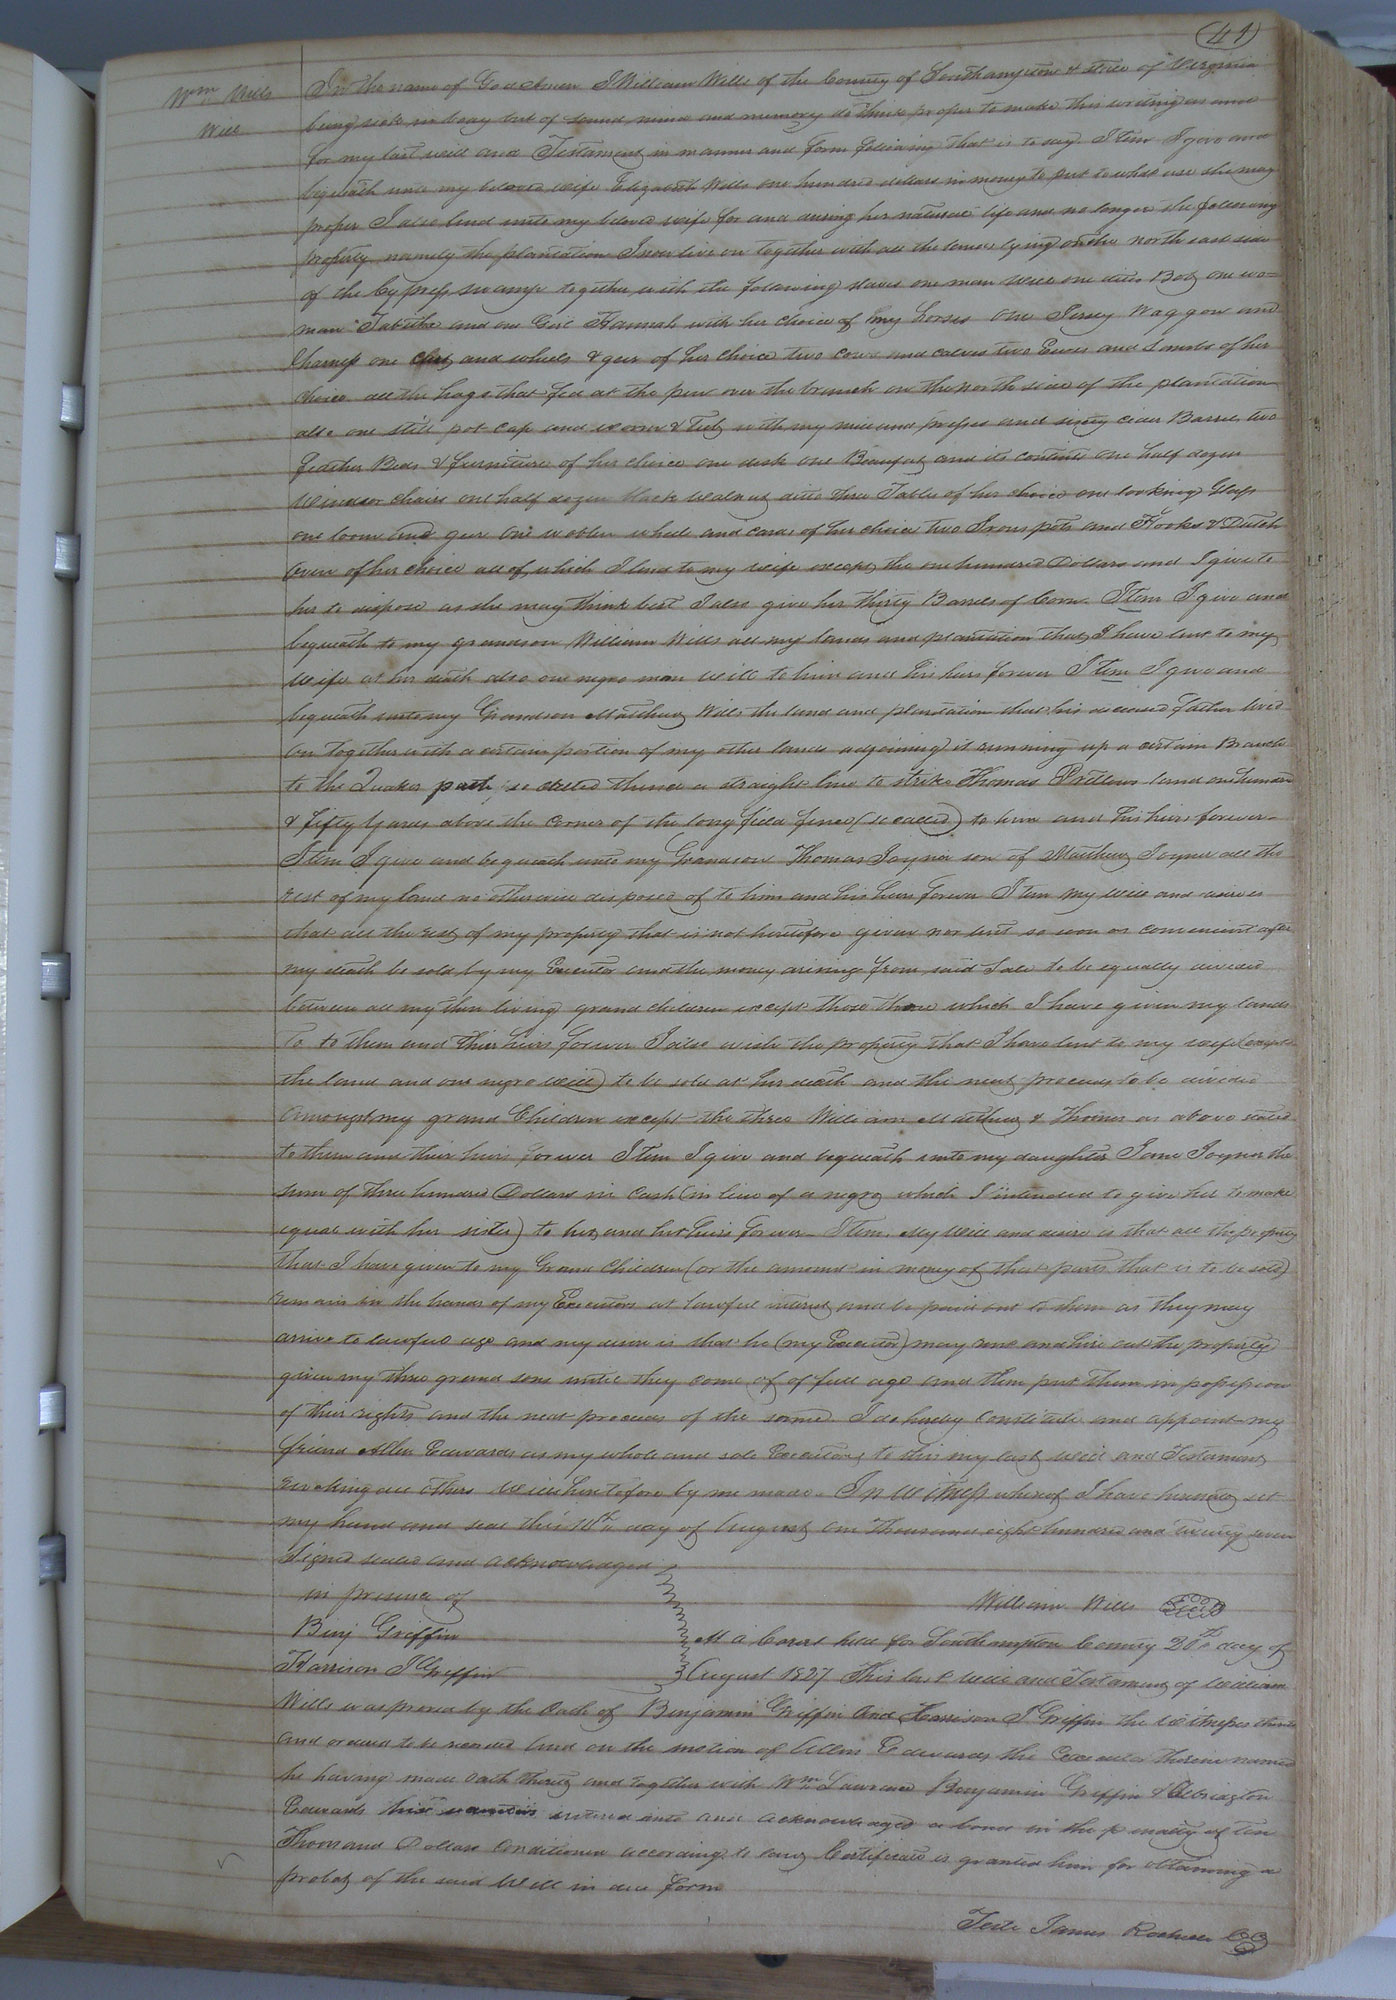 (41)
Wm. Wills
Will
In the name of God Amen I William Wills of the County of Southampton & state of Virginia
being sick in body but of sound mind and memory do think proper to make this writing as and
for my last will and Testament in manner and form following that is to say Item I give and
bequeath unto my beloved wife Elizabeth Wills one hundred dollars in money to put to what use she may
proper I also lend unto my beloved wife for and during her natural life and no longer the following
property namely the plantation I now live on together with all the land lying on the north east side
of the Cypress swamp together with the following slaves one man Will one ditto Bob one wo=
man Tabitha and one Girl Hannah with her choice of my horses one Jersey Waggon and
harness one and wheels & gear of her choice two cows and calves two Ewes and Lambs of her
choice all the hogs that fed at the pen over the branch on the north side of the plantation
also one still pot cap and worm & Tub with my mill and presses and sixty cider Barrels two
feather Beds & furniture of her choice one desk one Beaufat and its contents one half dozen
Windsor chairs one half dozen black walnut ditto three Tables of her choice one looking Glass
one loom and gear one woollen wheel and cards of her choice two Irons pots and Hooks & Dutch
oven of her choice all of which I lend to my wife except the one hundred Dollars and I give to
her to dispose as she may think best I also give her thirty Barrels of Corn. Item I give and
bequeath to my grandson William Wills all my lands and plantation that I have lent to my
wife at her death also one negro man Will to him and his heirs forever Item I give and
bequeath unto my Grandson Matthew Wills the land and plantation that his deceased father lived
on together with a certain portion of my other lands adjoining it running up a certain Branch
to the Quaker path so called thence a straight line to strike Thomas Pretlows land one hundred
& fifty yards above the corner of the long field fence (so called) to him and his heirs forever-
Item I give and bequeath unto my Grandson Thomas Joyner son of Matthew Joyner all the
rest of my land no otherwise disposed of to him and his heirs forever Item my will and desire is
that all the rest of my property that is not heretofore given nor lent so soon as convenient after
my death be sold by my Executor and the money arising from said sale to be equally divided
between all my then living grand children except those three which I have given my lands
To to them and their heirs forever I also wish the property that I have lent to my wife (except
the land and one negro Will) to be sold at her death and the neat proceeds to be divided
amongst my grand Children except the three William Matthew & Thomas as above stated
to them and their heirs forever Item I give and bequeath unto my daughter Jane Joyner the
sum of three hundred Dollars in Cash (in lieu of a negro which I intended to give her to make
equal with her sister) to her and her heirs forever- Item. My Will and desire is that all the property
that I have given to my Grand Children (or the amount in money of that parts that is to be sold)
remain in the hands of my Executors at lawful interest and be paid out to them as they may
arrive to lawful age and my desire is that he (my Executor) may rent and hire out the property
given my three grand sons until they come of of full age and then put them in possession
of their rights and the neat proceeds of the same. I do hereby Constitute and appoint my
friend Allen Edwards as my whole and sole Executors to this my last will and Testament
revoking all others Wills heretofore by me made. In Witness whereof I have hereunto set
my hand and seal this 10th day of August one Thousand eight hundred and twenty seven
Signed sealed and acknowledged
in presence of
William Wills Seal
Binj Griffin
Harrison J Griffin
At a Court held for Southampton County 20th day of
August 1827 This last will and Testament of William
Wills was proved by the Oath of Benjamin Griffin and Harrison J Griffin the Witnesses thereto
and ordered to be recorded And on the motion of Allen Edwards the Executor therein named
he having made Oath thereto and together with Wm Lawrence Benjamin Griffin & Albrington
Edwards entered into and acknowledged a bond in the penalty of Ten
Thousand Dollars Conditioned according to law Certificate is granted him for obtaining a
probate of the said Will in due form
Teste James Rochelle CC